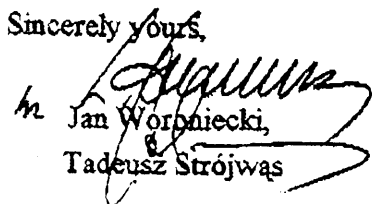 Sincerely yours,
Jan Woroniecki,
Tadeusz Strójwąs